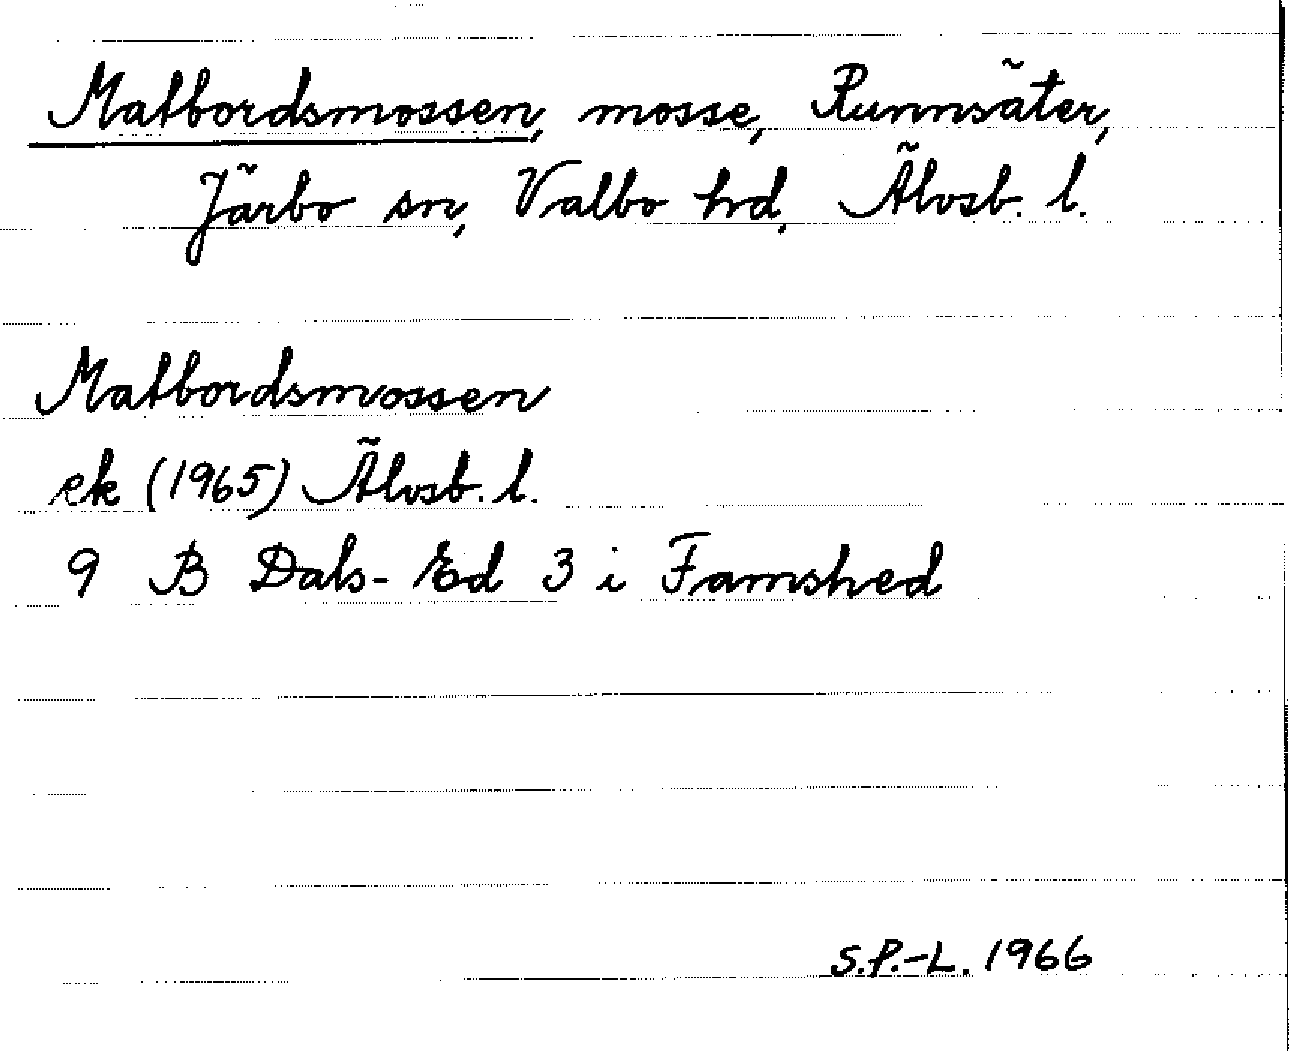 Matbordsmossen, mosse, Runnsäter,
Järbo sn, Valbo hd, Älvsb. l.
Matbordsmossen
ek (1965) Älvsb. l.
9 B Dals-Ed 3 i Famshed
S.P.-L. 1966